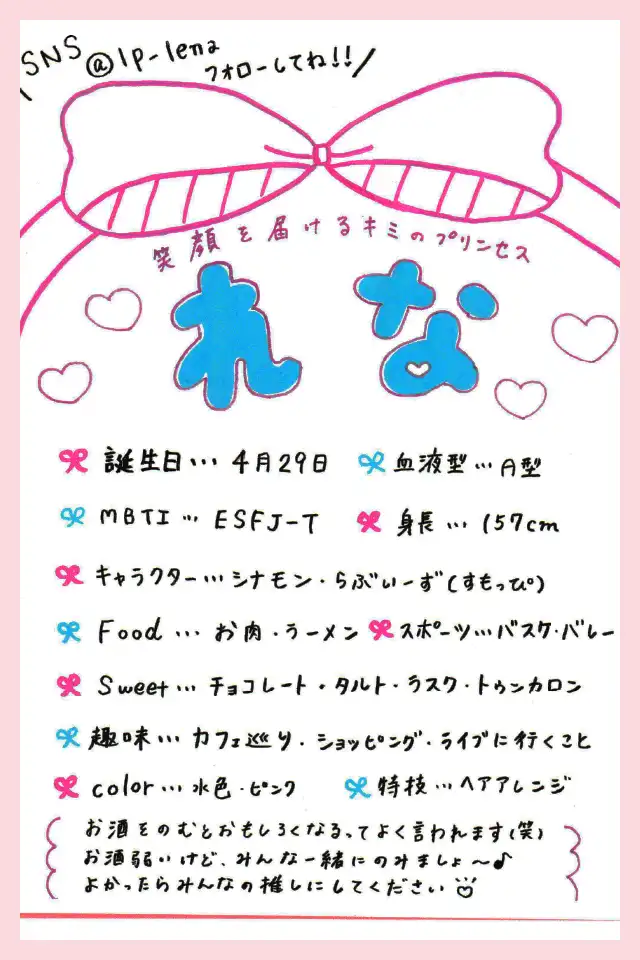 SNS @lp-lena
フォローしてね!!
笑顔を届けるキミのプリンセス
れな
誕生日…4月29日 血液型…A型
MBTI…ESFJ-T 身長…157cm
キャラクター…シナモン・らぶいーず(すもっぴ)
Food…お肉・ラーメン スポーツ…バスケ・バレー
Sweet…チョコレート・タルト・ラスク・トゥンカロン
趣味…カフェ巡り・ショッピング・ライブに行くこと
color…水色・ピンク 特技…ヘアアレンジ
お酒をのむとおもしろくなるってよく言われます(笑)
お酒弱いけど、みんな一緒にのみましょ〜♪
よかったらみんなの推しにしてください